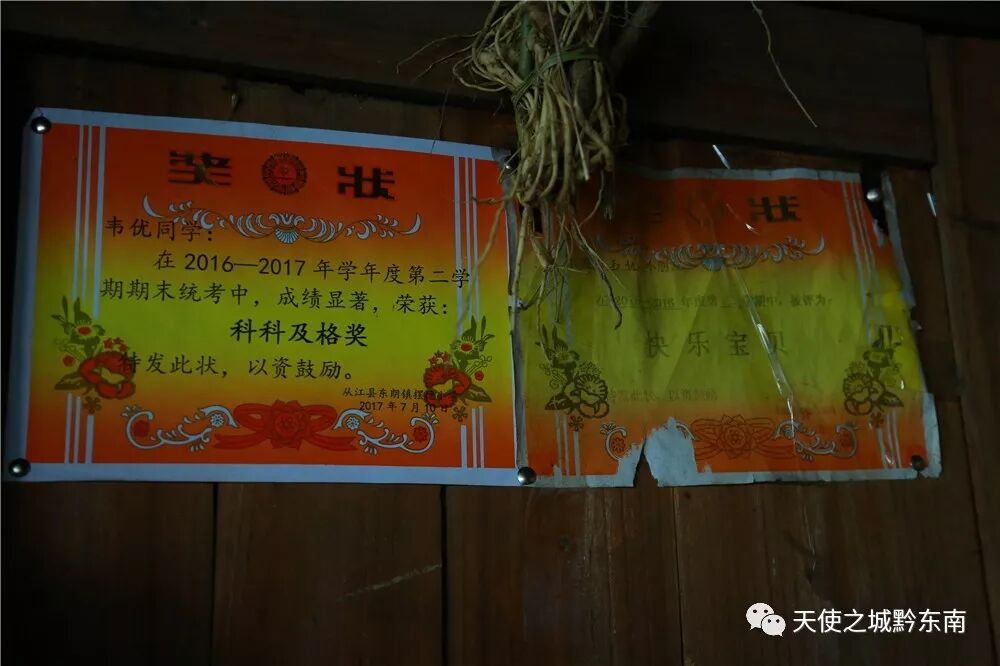 奖 状
韦优同学：
在 2016—2017 年学年度第二学
期期末统考中，成绩显著，荣获：
科科及格奖
特发此状，以资鼓励。
从江县东朗镇摆
2017 年 7 月 10 日
状
年度第
学期中，被评为：
快乐宝贝
发此状，以资鼓励
天使之城黔东南